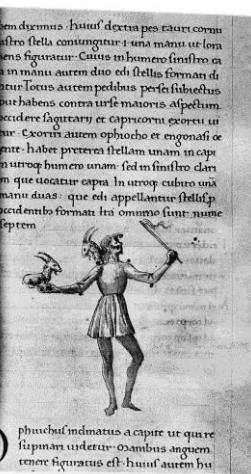 em diximus · huius dextra pes tauri cornu
istro stella coniungitur · i una manu ut lora
ens figuratur · Cuius in humero sinistro ca
a in manu autem duo edi stellis formati di
tur Totus autem pedibus persei subiectus
put habens contra urse maioris aspectum
occidere sagittarij et capricorni exortu ui
tur · Exoriri autem ophiocho et engonasi oc
ente · habet preterea stellam unam in capi
n utroq; humero unam · sed in sinistro clari
m que uocatur capra In utroq; cubito unā
manu duas · que edi appellantur stellis p
ccidentibo formati Ita omnino sunt nume
septem
O phiuchus inclinatus a capite ut qui re
supinari uidetur · Manibus anguem
tenere figuratus est · huius autem hu